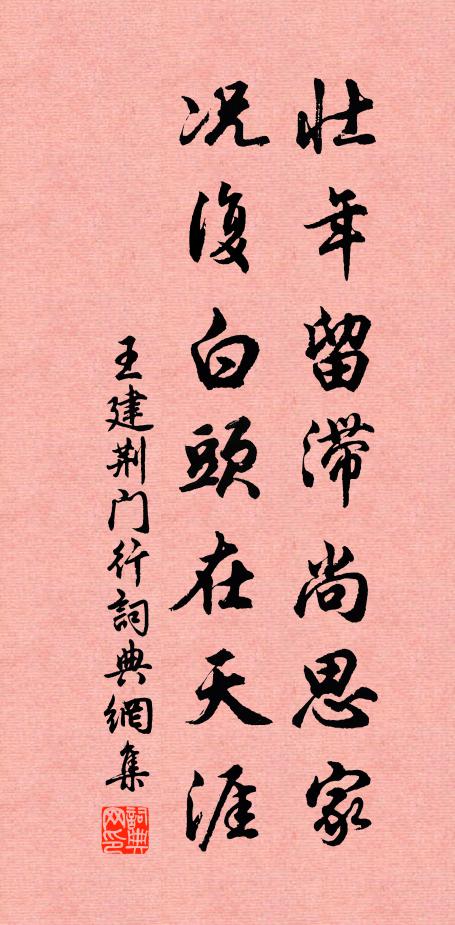 壮年留滯尚思家
况復白頭在天涯
王建荆门行詞典網集
詞典网印